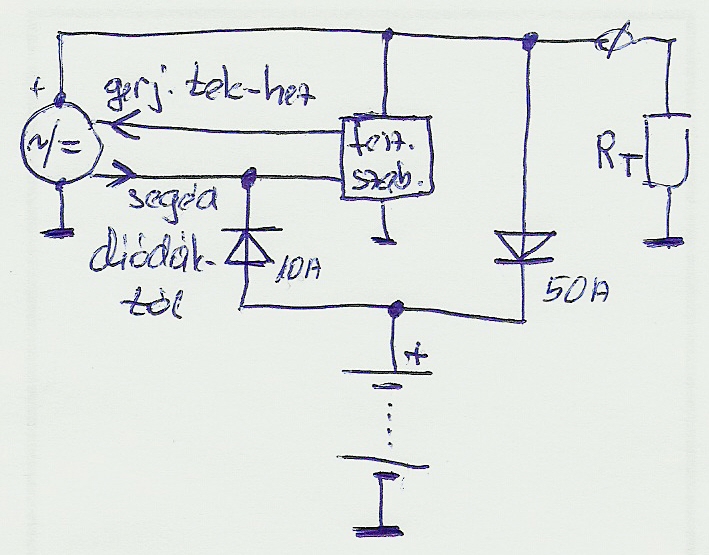 +
gerj. tek-hez
~/=
fesz.
szab.
segéd
diódák-
tól
10A
50A
R_T
+